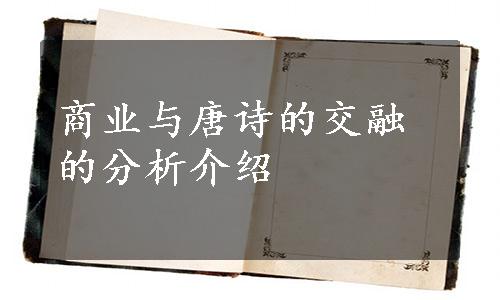 商业与唐诗的交融
的分析介绍